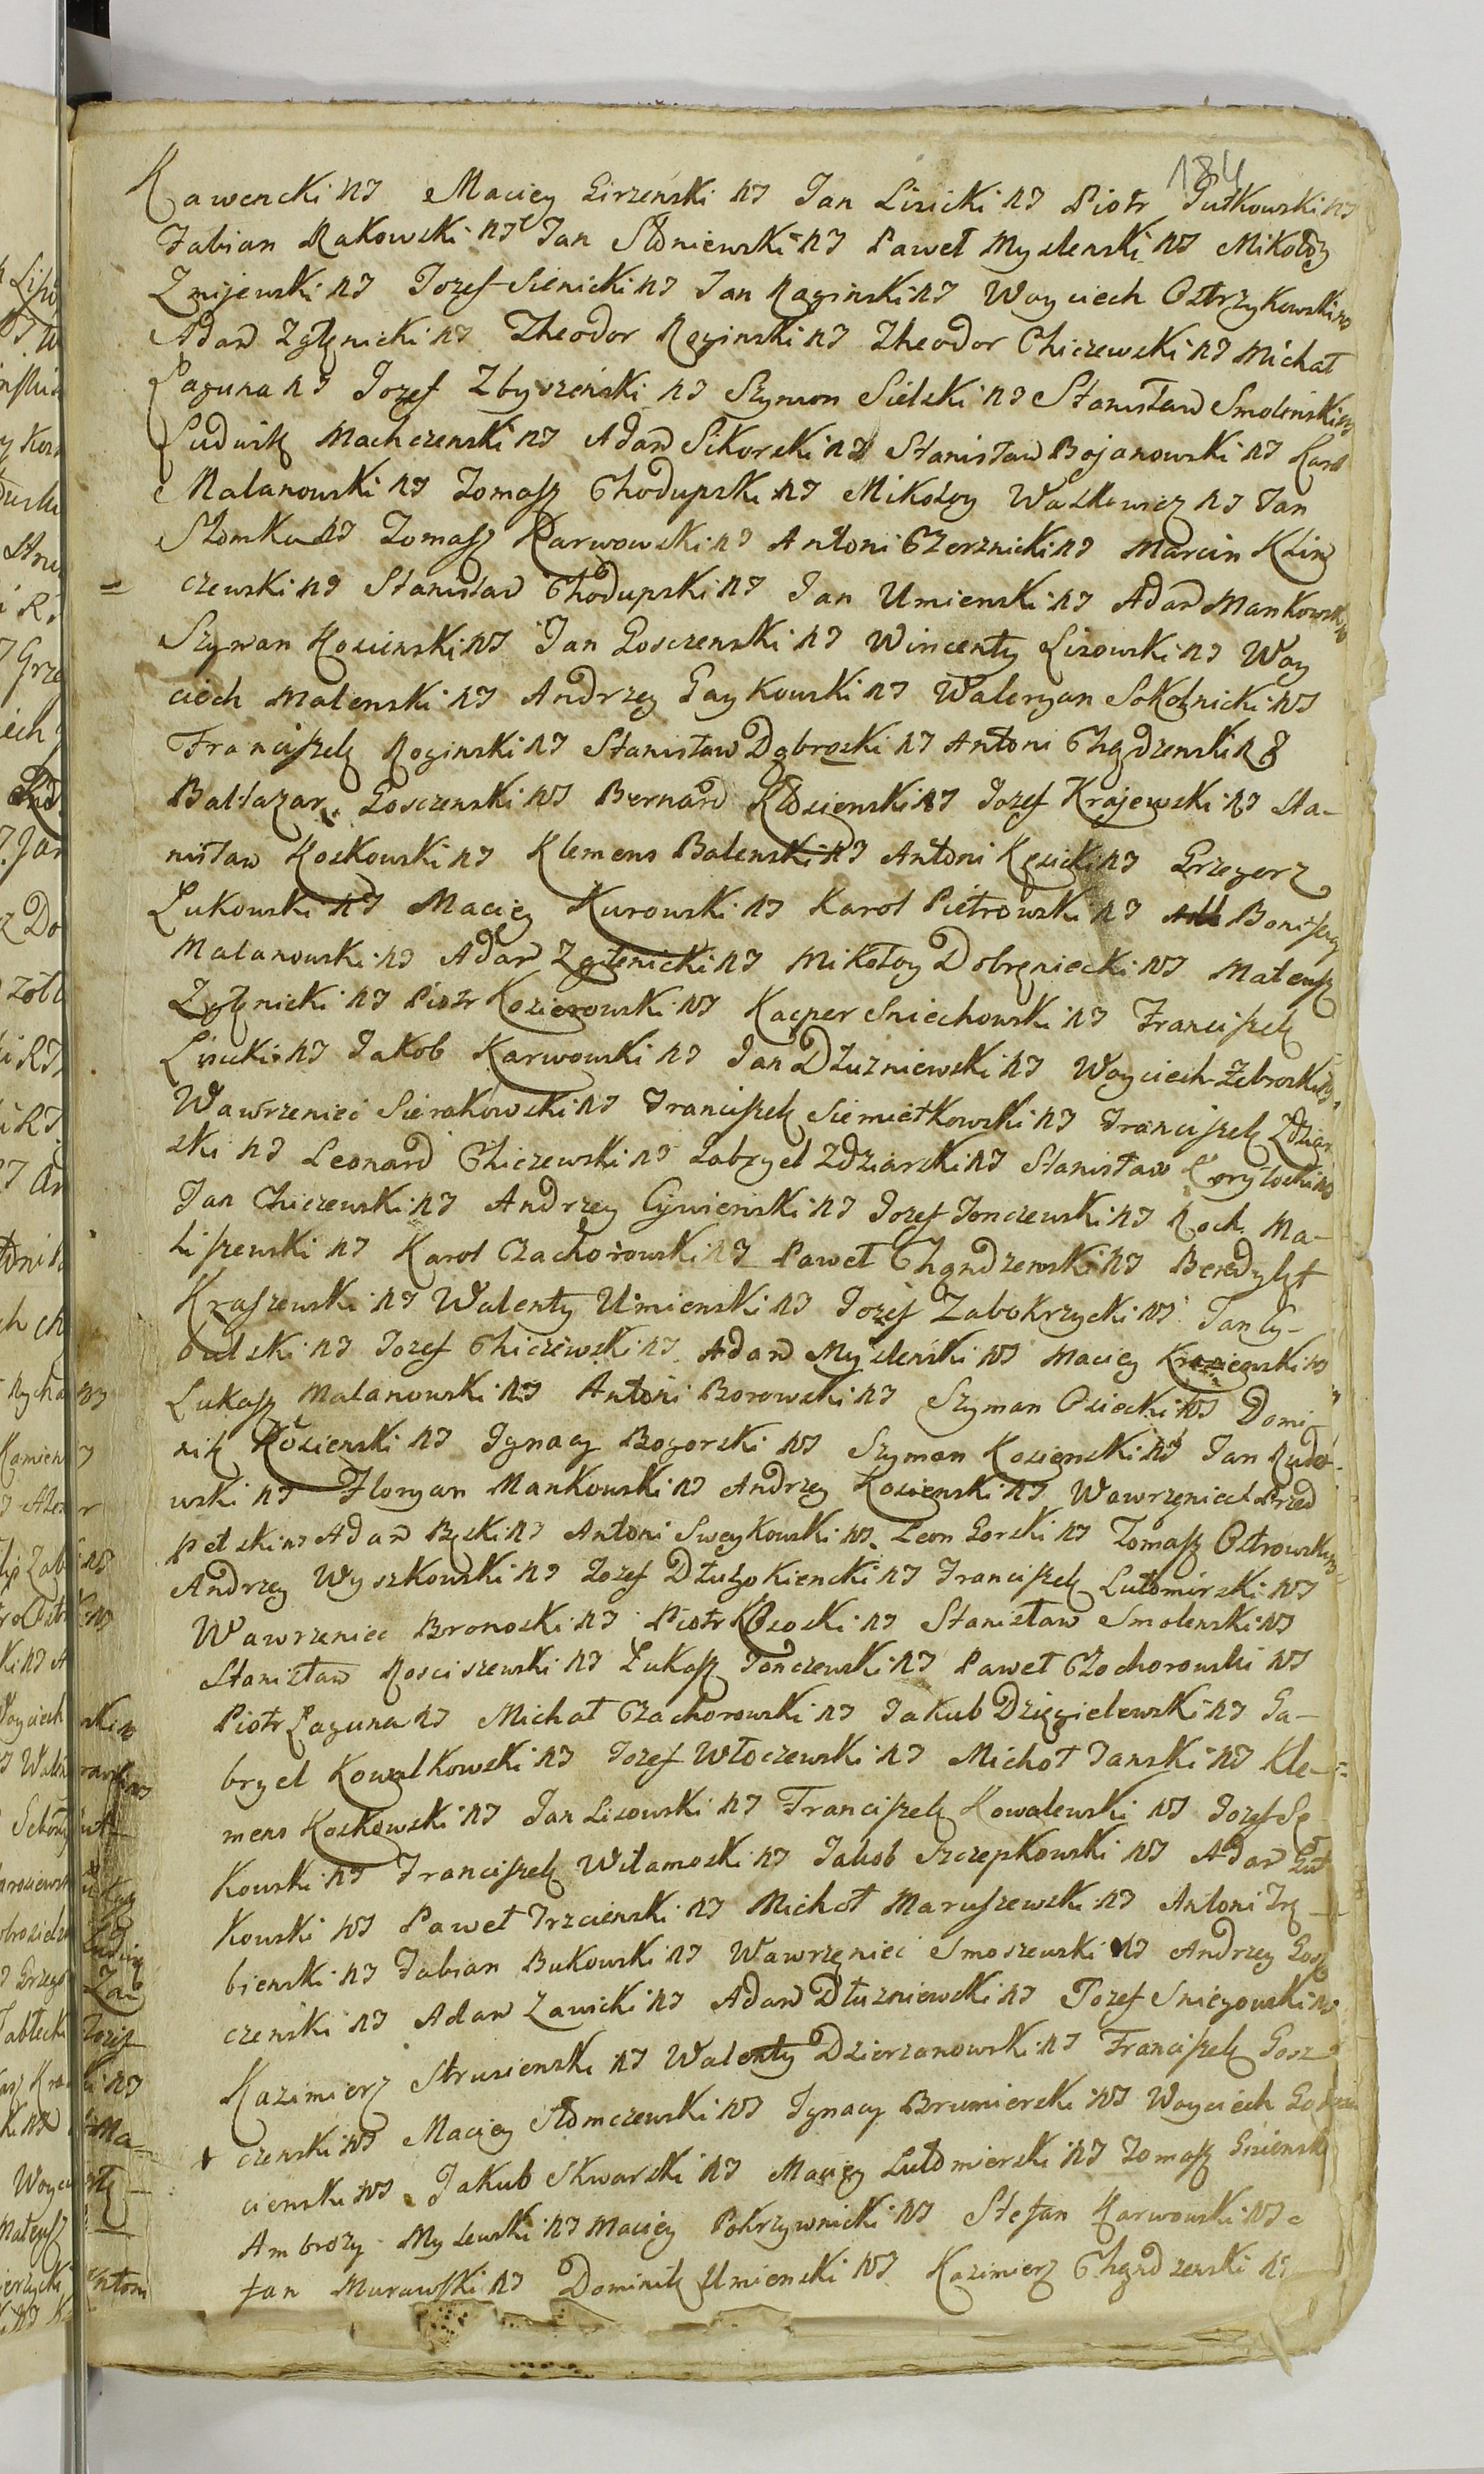 184
Kawencki RJ Maciey Girzenski RJ Jan Lisicki RJ Piotr Gutkowski RJ
Fabian Rakowski RJ Jan Słoniewski RJ Paweł Myslenski RJ Mikołay
Zmijewski RJ Jozef Sienicki RJ Jan Raginski RJ Woyciech Ostrzykowski RJ
Adam Zglenicki RJ Theodor Reginski RJ Theodor Chiczewski RJ Michał
Łaguna RJ Jozef Zbyszeński RJ Szymon Sielski RJ Stanisław Smolenski RJ
Ludwik Machczenski RJ Adam Sikorski RJ Stanisław Bojanowski RJ Karol
Malanowski RJ Tomasz Chodupski RJ Mikołay Waśkiewicz RJ Jan
Słomka RJ Tomasz Karwowski RJ Antoni Czernicki RJ Marcin Klim
czewski RJ Stanisław Chodupski RJ Jan Umienski RJ Adam Mankowski RJ
Szyman Kosienski RJ Jan Gosczenski RJ Wincenty Lisowski RJ Woy
ciech Malenski RJ Andrzey Gaykowski RJ Waleryan Sokolnicki RJ
Franciszek Roginski RJ Stanisław Dąbroski RJ Antoni Chądzenski RJ
Baltazar Gosczenski RJ Bernard Kłosienski RJ Jozef Krajewski RJ Sta-
nisław Koskowski RJ Klemens Balenski RJ Antoni Kęsicki RJ Grzegorz
Łukowski RJ Maciey Kurowski RJ Karol Pietrowski RJ Bonifacy
Malanowski RJ Adam Zglenicki RJ Mikołay Dobręniecki RJ Mateusz
Zglenicki RJ Piotr Kozierowski RJ Kacper Sniechowski RJ Franciszek
Lisicki RJ Jakob Karwowski RJ Jan Dłuzniewski RJ Woyciech Zebroski RJ
Wawrzeniec Sierakowski RJ Franciszek Siemiętkowski RJ Franciszek Zdziar
ski RJ Leonard Chiczewski RJ Gabryel Zdziarski RJ Stanisław Corytoski RJ
Jan Chiczewski RJ Andrzey Cywienski RJ Jozef Jonczewski RJ Roch Ma-
liszewski RJ Karol Czachorowski RJ Paweł Chądzenski RJ Benedykt
Kraszewski RJ Walenty Umienski RJ Jozef Zabokrzycki RJ Jan Cy-
bulski RJ Jozef Chiczewski RJ Adam Myslenski RJ Maciey RJ
Łukasz Malanowski RJ Antoni Borowski RJ Szyman Osiecki RJ Domi-
nik Kosienski RJ Jgnacy Bogorski RJ Szymon Kosienski RJ Jan Rudo-
wski RJ Floryan Mankowski RJ Andrzey Kosienski RJ Wawrzeniec Przed
pełski RJ Adam Bęski RJ Antoni Sweykowski RJ Leon Gorski RJ Tomasz Ostrowski RJ
Andrzey Wyszkowski RJ Jozef Dłużokiencki RJ Franciszek Lutomirski RJ
Wawrzeniec Bronoski RJ Piotr Kłososki RJ Stanisław Smolenski RJ
Stanisław Rosciszewski RJ Łukasz Jonczewski RJ Paweł Czochorowski RJ
Piotr Łaguna RJ Michał Czachorowski RJ Jakub Dzięgielewski RJ Ga-
bryel Kowalkowski RJ Jozef Włoczewski RJ Michał Janski RJ Kle-
mens Koskowski RJ Jan Lisowski RJ Franciszek Kowalewski RJ Jozef Sę
kowski RJ Franciszek Wilamoski RJ Jakob Szczepkowski RJ Adam Gut
kowski RJ Paweł Trzcienski RJ Michał Maruszewski RJ Antoni Trę-
bienski RJ Fabian Bukowski RJ Wawrzeniec Smoszewski RJ Andrzey Gosz
czenski RJ Adam Zawicki RJ Adam Dłuzniewski RJ Jozef Sniegowski RJ
Kazimierz Strusienski RJ Walenty Dzierzanowski RJ Franciszek Gosz
czenski RJ Maciey Słomczewski RJ Jgnacy Brumierski RJ Woyciech
cienski RJ Jakub Skwarski RJ Maciey Lutomierski RJ Tomasz Gisienski
Ambrozy Myslewski RJ Maciey Pokrzywnicki RJ Stefan Karwowski RJ
Jan Murawski RJ Dominik Umienski RJ Kazimierz Chądzenski RJ